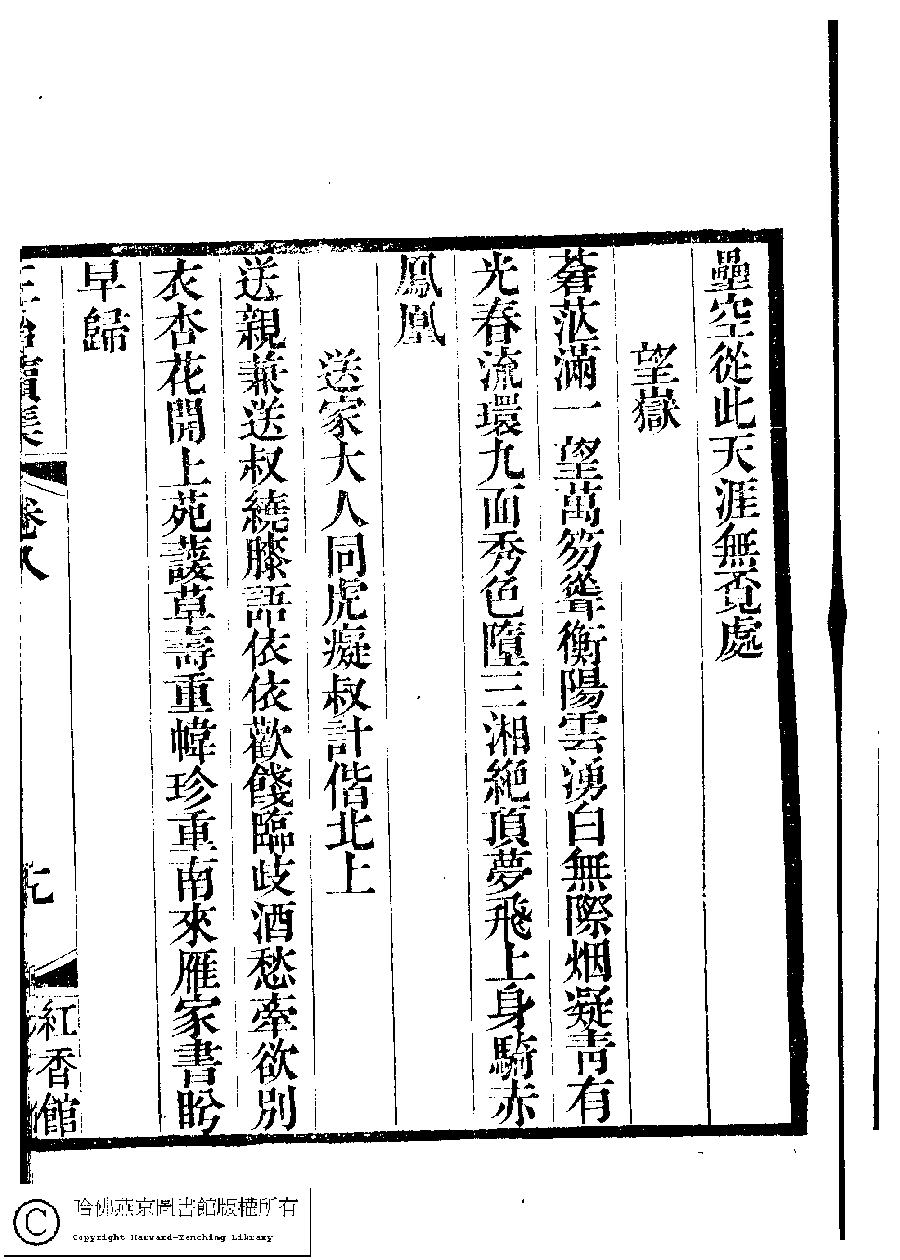 壘空從此天涯無覓處
望嶽
蒼茫滿一望萬笏聳衡陽雲湧白無際烟凝青有
光春流環九面秀色墮三湘絶頂夢飛上身騎赤
鳳凰
送家大人同虎癡叔計偕北上
送親兼送叔繞膝語依依歡餞臨歧酒愁牽欲別
衣杏花開上苑護草壽重幃珍重南來雁家書盻
早歸
續集
卷八
紅香館
哈佛燕京圖書館版權所有
Copyright Harvard-Yenching Library